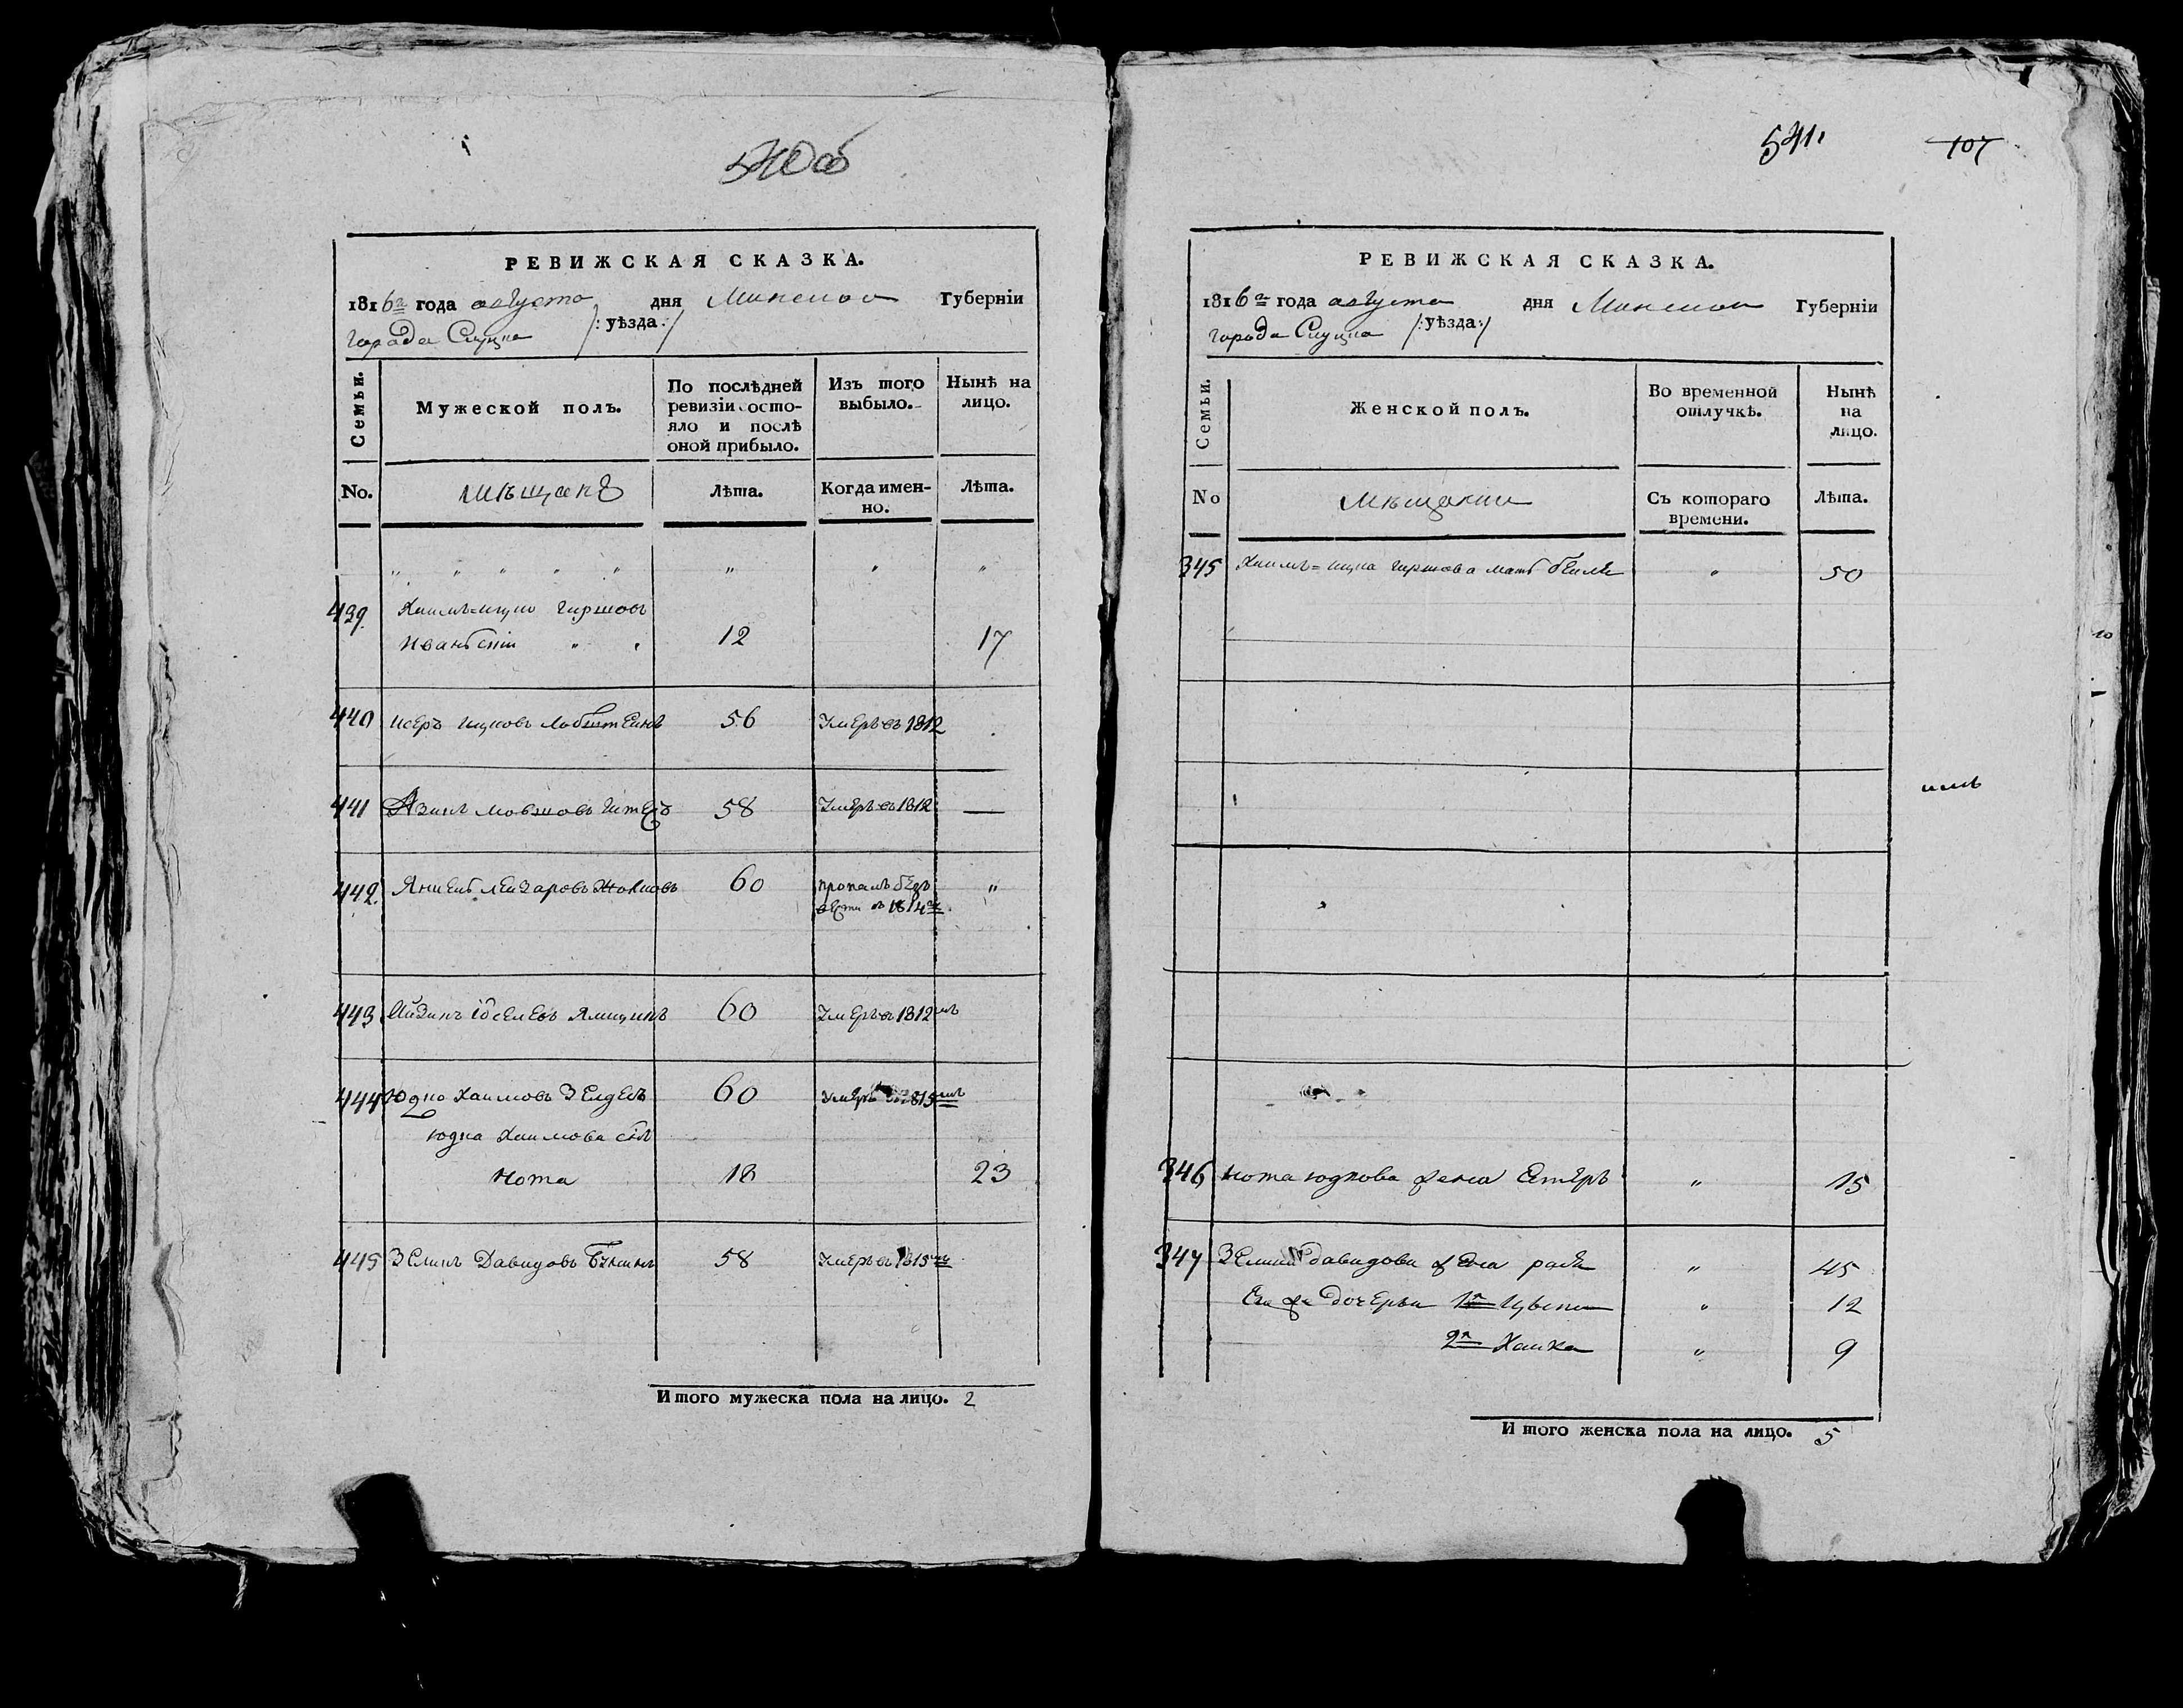 540 об
РЕВИЖСКАЯ СКАЗКА.
1816го года августа дня Минской Губерніи
города Слуцка /:уѣзда:/
Семьи.
Мужеской полъ.
По послѣдней ревизіи состояло и послѣ оной прибыло.
Изъ того выбыло.
Нынѣ на лицо.
No.
мѣщанѣ
Лѣта.
Когда именно.
Лѣта.
439. Хаимъ=ицко Гиршовъ
12 17
440 Исеръ Ицковъ 56 Умеръ въ 1812
441 Мовшовъ 58 Умеръ въ 1812 —
442. Лейзаровъ 60 пропалъ безъ "
вести въ 1814го
443 60 Умеръ въ 1812мъ
444 Юдко Хаимовъ Зелдевъ 60 Умеръ 1815мъ
Юдка Хаимова сынъ
Нота 18 23
445 Зеликъ Давидовъ 58 Умеръ въ 1815мъ
Итого мужеска пола на лицо. 2
541.
107
РЕВИЖСКАЯ СКАЗКА.
1816го года августа дня Минской Губерніи
города Слуцка /:уѣзда:/
Семьи.
Женской полъ.
Во временной отлучкѣ.
Нынѣ на лицо.
No
мѣщанки
Съ котораго времени.
Лѣта.
345 Хаимъ=ицка Гиршова мать Бейля " 50
346 Нота Юдкова жена Естеръ " 15
347 Зелика Давидова жена " 45
Его же дочери 1я " 12
2я Хайка " 9
Итого женска пола на лицо. 5